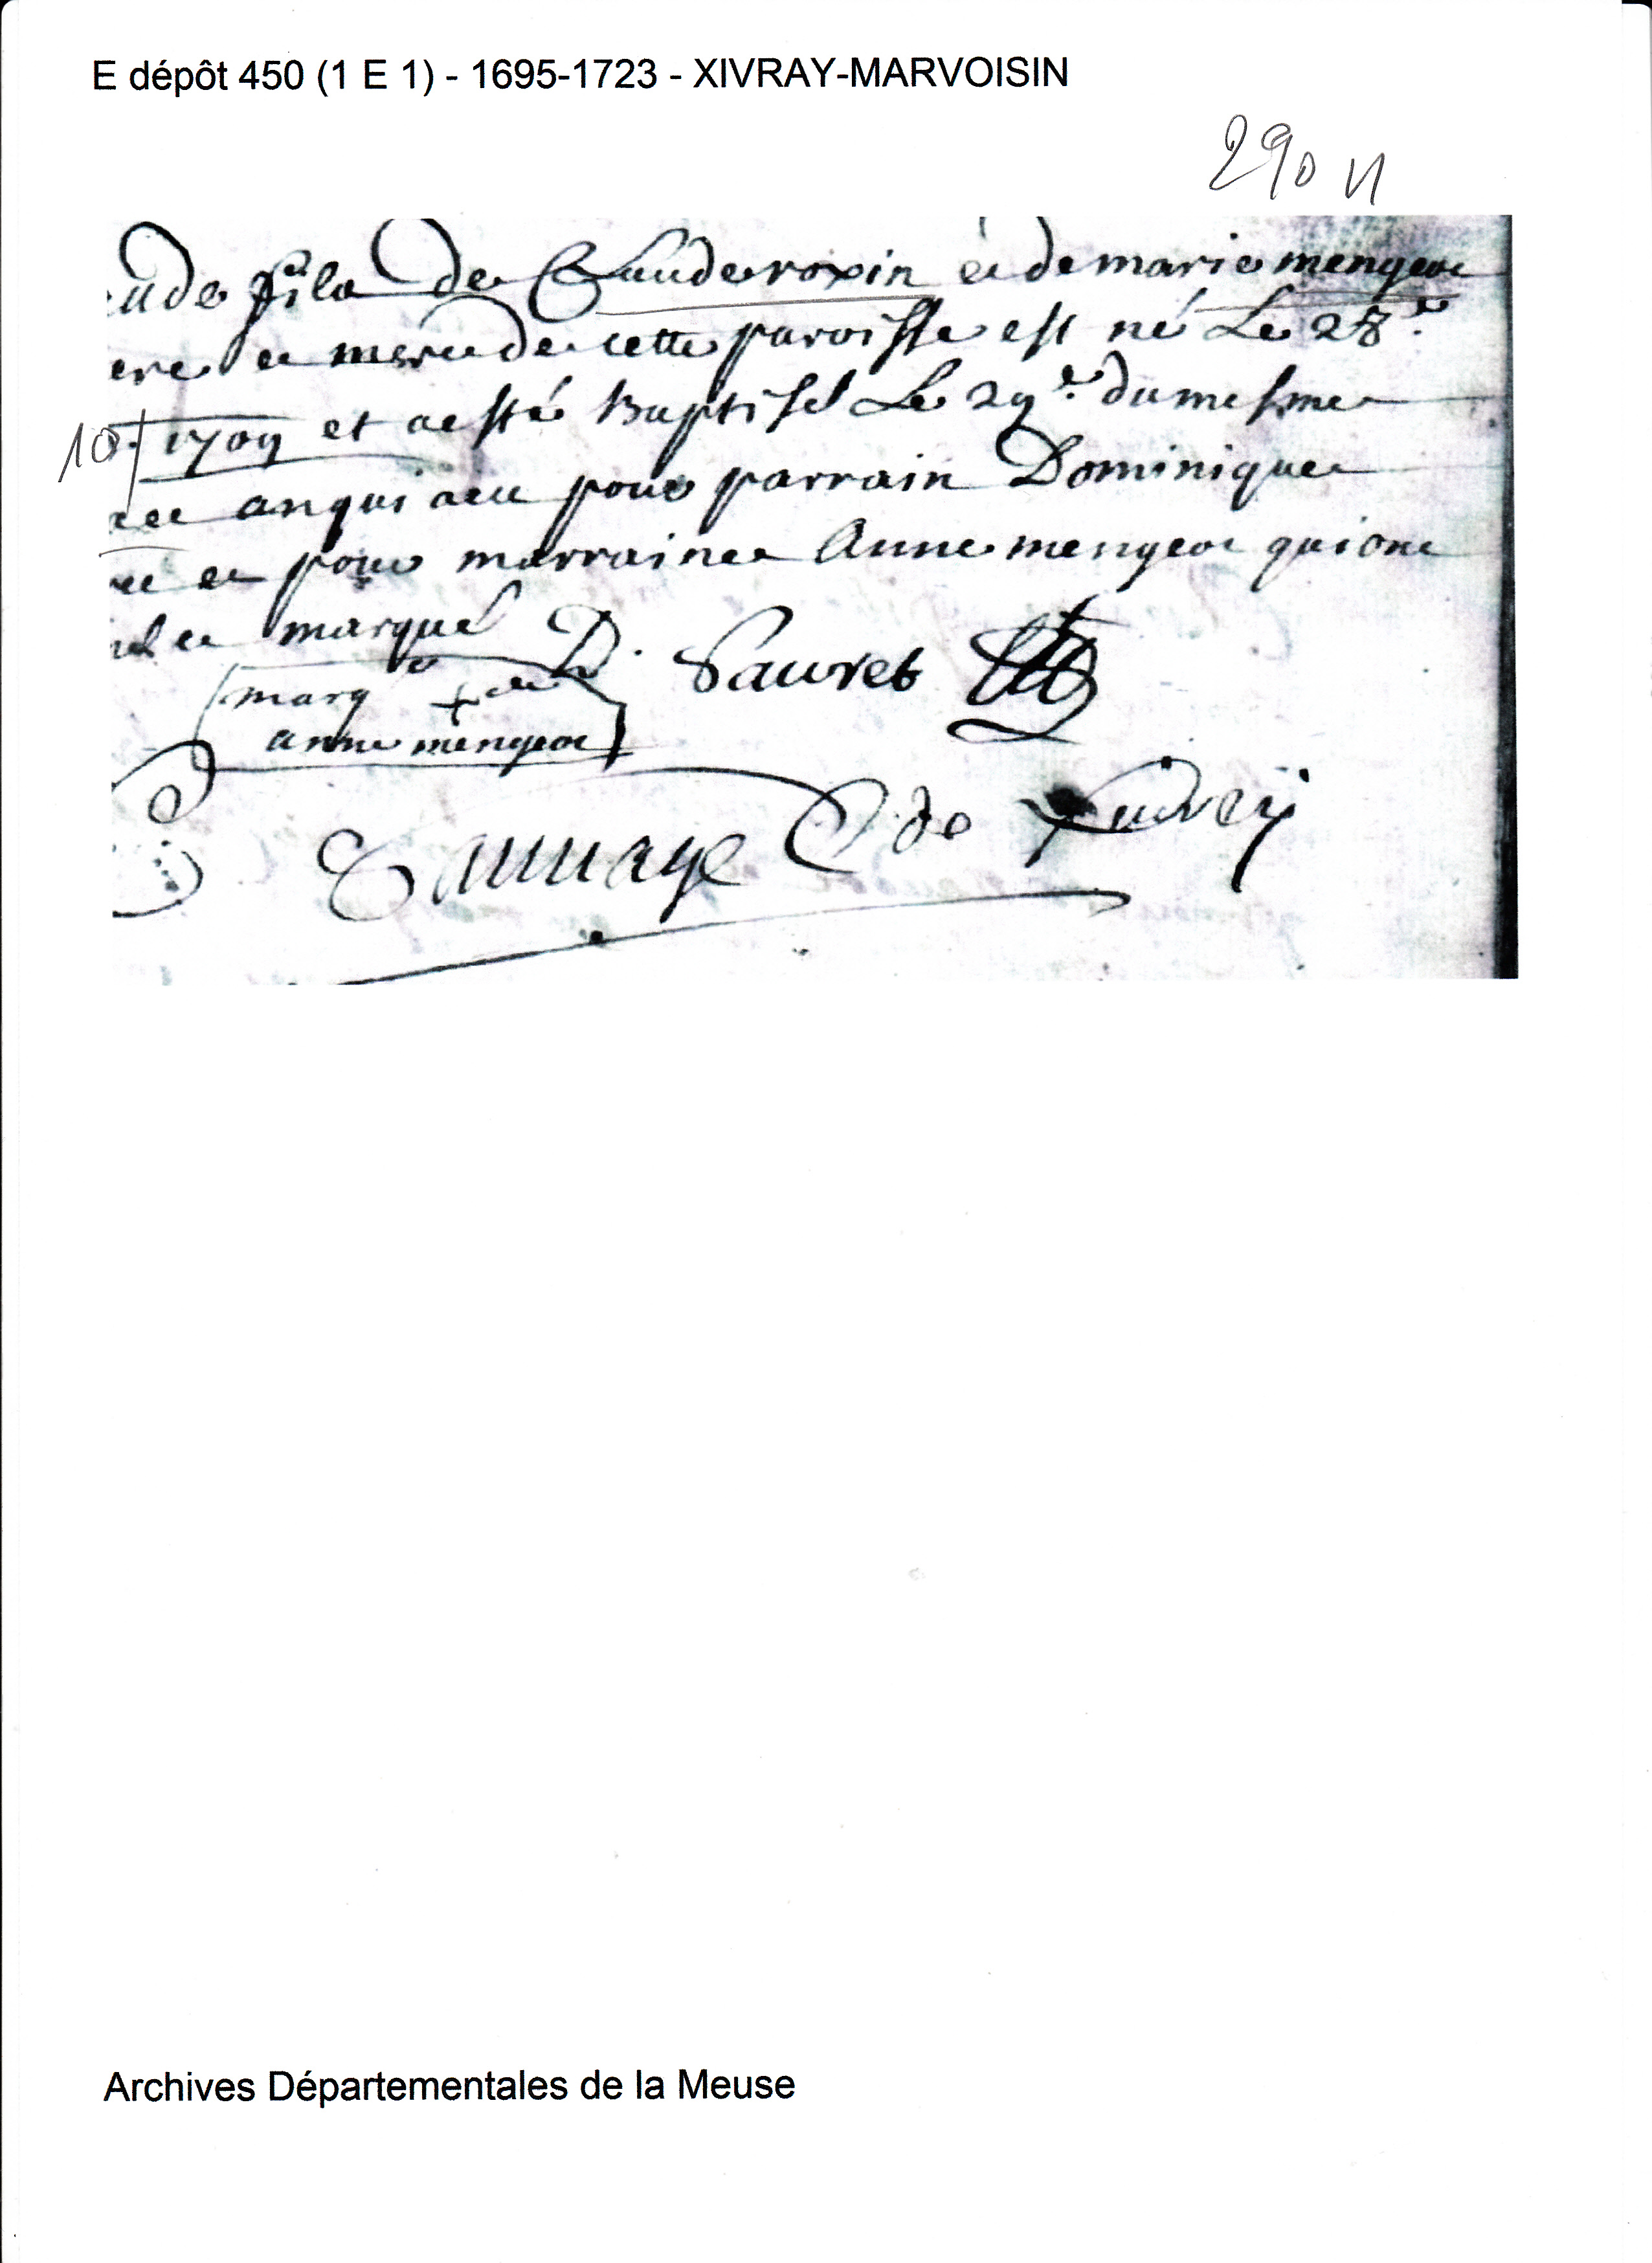 E dépôt 450 (1 E 1) - 1695-1723 - XIVRAY-MARVOISIN
290
ude fils de Claude roxin et de marie mengeot
ere et mere de cette paroisse est né Le 28.e
10. 1709 et a esté Baptisé Le 29.e du mesme
an qui a eu pour parrain Dominique
et pour marraine Anne mengeot qui ont
et marqué D. Sauvet
marq + de
anne mengeot
de
Archives Départementales de la Meuse